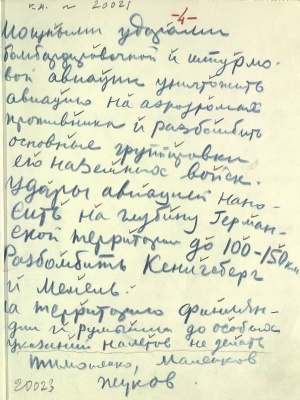 к н. н 20023
-4-
Мощными ударами
бомбардировочной и штурмо-
вой авиации уничтожить
авиацию на аэродромах
противника и разбомбить
основные группировки
его наземных войск.
Удары авиацией нано-
сить на глубину герман-
ской территории до 100-150 км
Разбомбить Кенигсберг
и Мемель.
На территорию Финлян-
дии и Румынии до особых
указаний налетов не делать
Тимошенко, Маленков
Жуков
20023